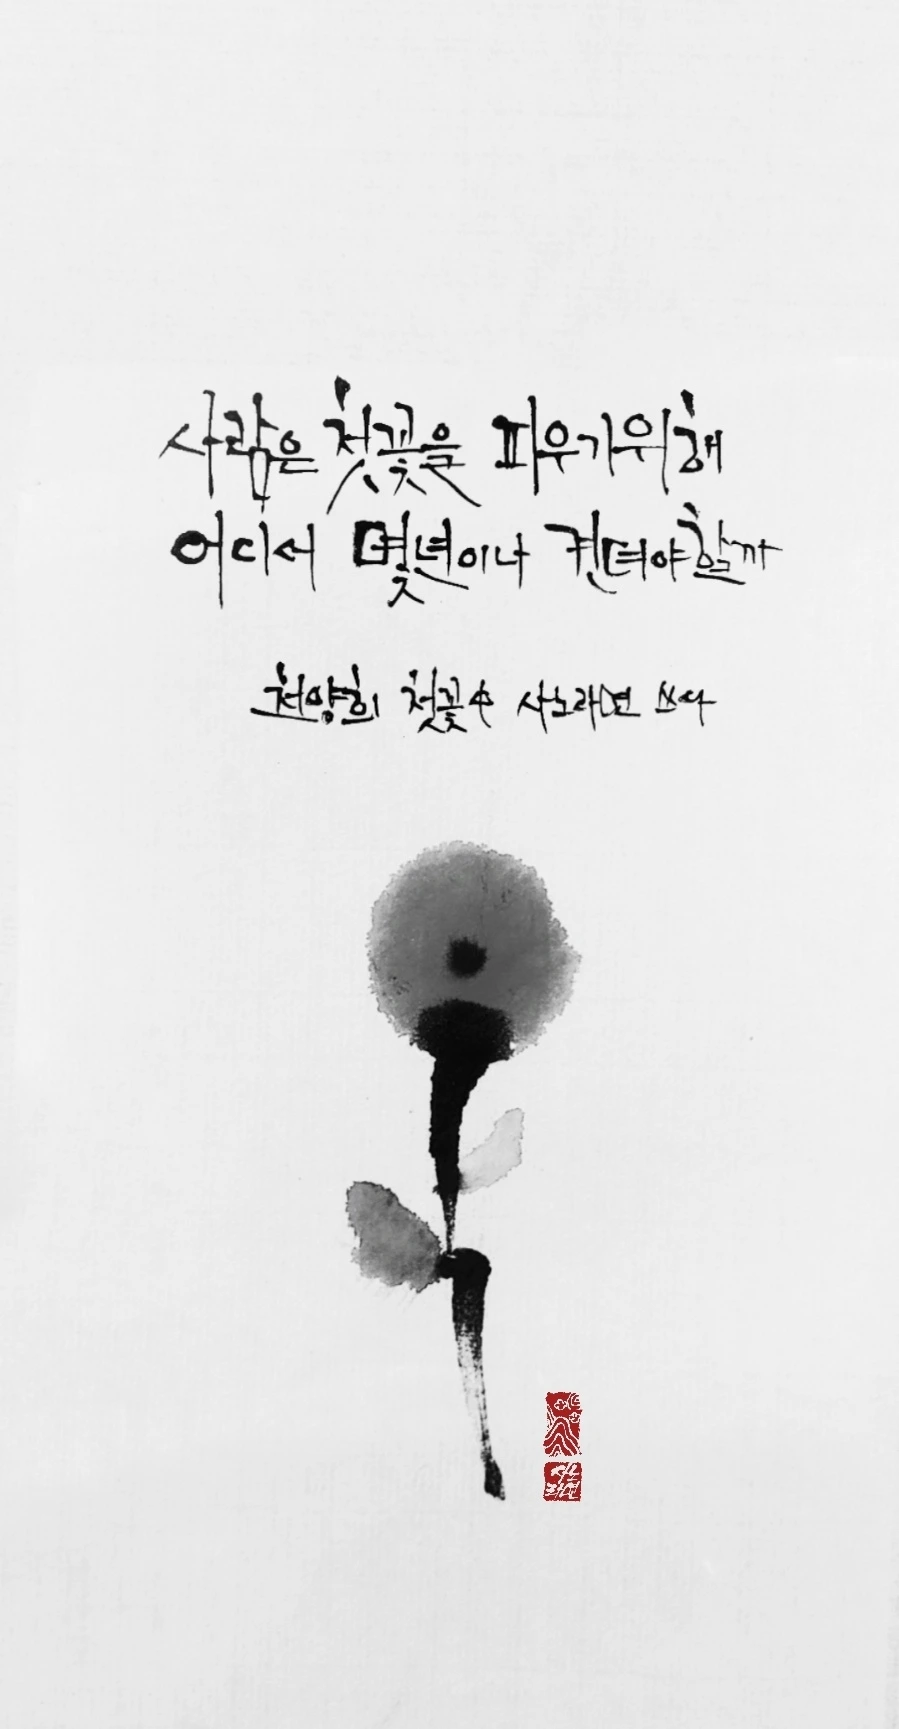 사람은 첫꽃을 피우기위해
어디서 몇년이나 견뎌야할까
천양희 첫꽃中 사노라면 쓰다